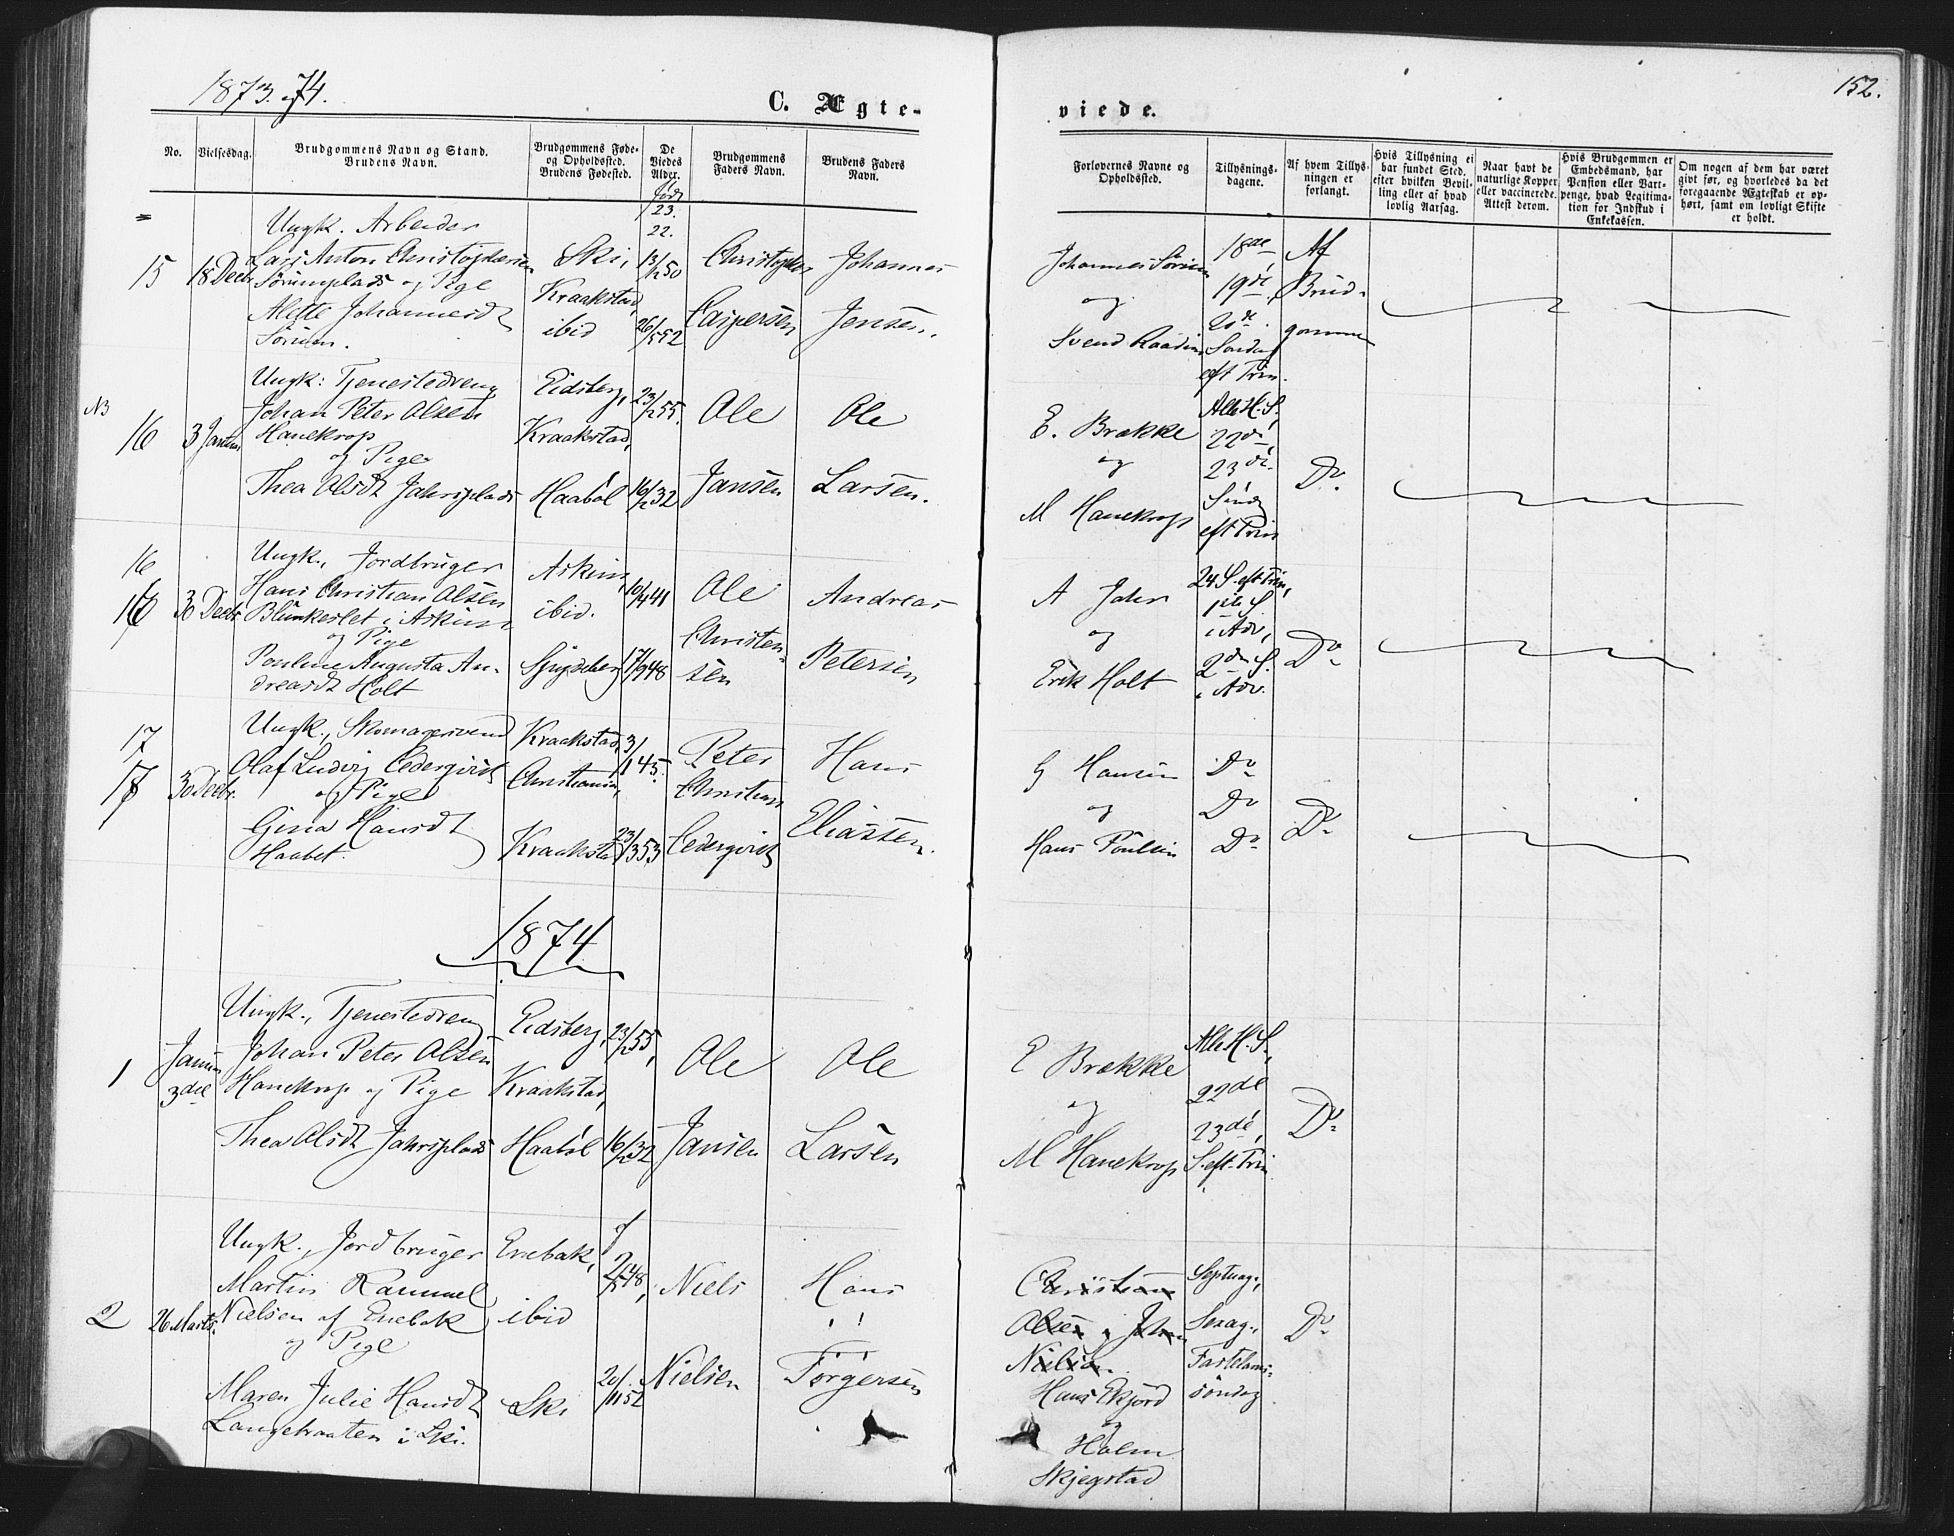 1873. og 74.
C. Ægte-
viede.
152.
No.
Vielsesdag.
Brudgommens Navn og Stand.
Brudens Navn.
Brudgommens Føde-
og Opholdssted.
Brudens Fødested.
De
Viedes
Alder.
Brudgommens
Faders Navn.
Brudens Faders
Navn.
Forlovernes Navne og
Opholdssted.
Tillysnings-
dagene.
Af hvem Tillys-
ningen er
forlangt.
Hvis Tillysning ei
har fundet Sted,
efter hvilken Bevil-
ling eller af hvad
lovlig Aarsag.
Naar havt de
naturlige Kopper
eller vaccinerede.
Attest derom.
Hvis Brudgommen er
Embedsmand, har
Pension eller Vart-
penge, hvad Legitima-
tion for Indskud i
Enkekassen.
Om nogen af dem har været
gift før, og hvorledes da det
foregaaende Ægteskab er op-
hørt, samt om lovligt Skifte
er holdt.
født
23.
22.
15
18 Decbr
Ungk. Arbeider
Lars Anton Christophersen
Sørumplads og Pige
Alette Johannesdt
Sørum.
Ski,
Kraakstad,
ibid
13/12 50
26/5 52
Christopher
Caspersen
Johannes
Jensen.
Johannes Sørum
og
Svend Raaden
18de
19de,
20de
Søndag
eft Trin.
Af
Brud-
gommen
NB
16
3 Januar
Ungk: Tjenestedreng
Johan Peter Olsen
Hanekrop
og Pige
Thea Olsdt Jahrsplads
Eidsberg,
Kraakstad,
Haabøl
23/12 55.
16/12 32
Ole
Jansen
Ole
Larsen.
E. Brække
og
M Hanekrop
Alle H. S,
22de,
23de.
Sønd
eft Trin
Do.
16
16
30 Decbr.
Ungk., Jordbruger
Hans Christian Olsen
Blunkerlet i Askim
og Pige
Pouline Augusta An-
dreasdt Holt
Askim,
ibid.
Spydeberg
10/4 41
17/9 48
Ole
Christen-
sen
Andreas
Petersen
A Jahr
og
Erik Holt
24 S. eft Trin,
1ste S.
i Adv,
2den S.
i Adv.
Do
17
17
30 Decbr.
Ungk., Skomagersvend
Olaf Ludvig Cederqvist
og Pige
Gina Hansdt
Haabet.
Kraakstad,
Christiania,
Kraakstad
3/1 45.
23/3 53
Peter
Christian
Cederqvist
Hans
Eliassen.
G Hansen
og
Hans Poulsen
Do
Do
Do
Do
1874
1
Januar
3die
Ungk., Tjenestedreng
Johan Peter Olsen
Hanekrop og Pige
Thea Olsdt Jahrsplads
Eidsberg,
Kraakstad,
Haabøl
23/12 55,
16/12 32
Ole
Jansen
Ole
Larsen
E Brække
og
M Hanekrop
Alle H. S.,
22de
23de,
S. eft. Trin
Do
2
26 Marts.
Ungk., Jordbruger
Martin Rammel
Nielsen af Enebak
og Pige
Maren Julie Hansdt
Langebraaten i Ski.
Enebak,
ibid
Ski
48,
20/11 52
Niels
Nielsen
Hans
Torgersen
Christian
Olsen og Johan
Nielsen.
Hans Ekjord
og
Holm
Skjegstad
Septuag.,
Sexag.,
Fastelavns-
søndag
Do